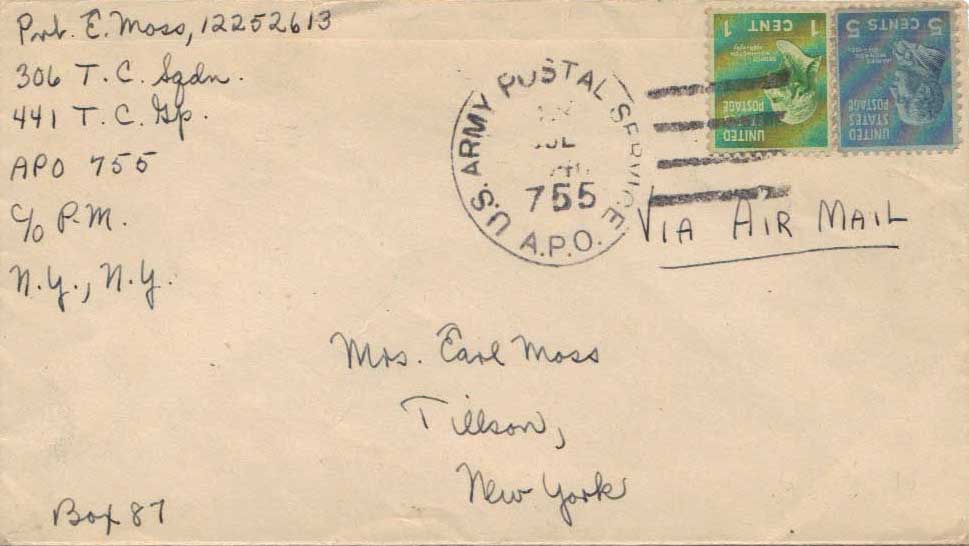 Pvt. E. Moss, 12252613
306 T. C. Sqdn.
441 T. C. Gp.
APO 755
c/o P.M.
N.Y., N.Y.
U.S. ARMY POSTAL SERVICE
755
A.P.O.
1 CENT
UNITED STATES POSTAGE
5 CENTS
UNITED STATES POSTAGE
VIA AIR MAIL
Mrs. Earl Moss
Tillson,
New York
Box 87